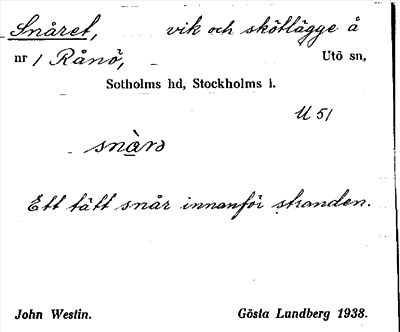 Snåret, vik och skötlägge å
nr 1 Rånö, Utö sn,
Sotholms hd, Stockholms l.
U 51
Ett tätt snår innanför stranden.
John Westin. Gösta Lundberg 1938.